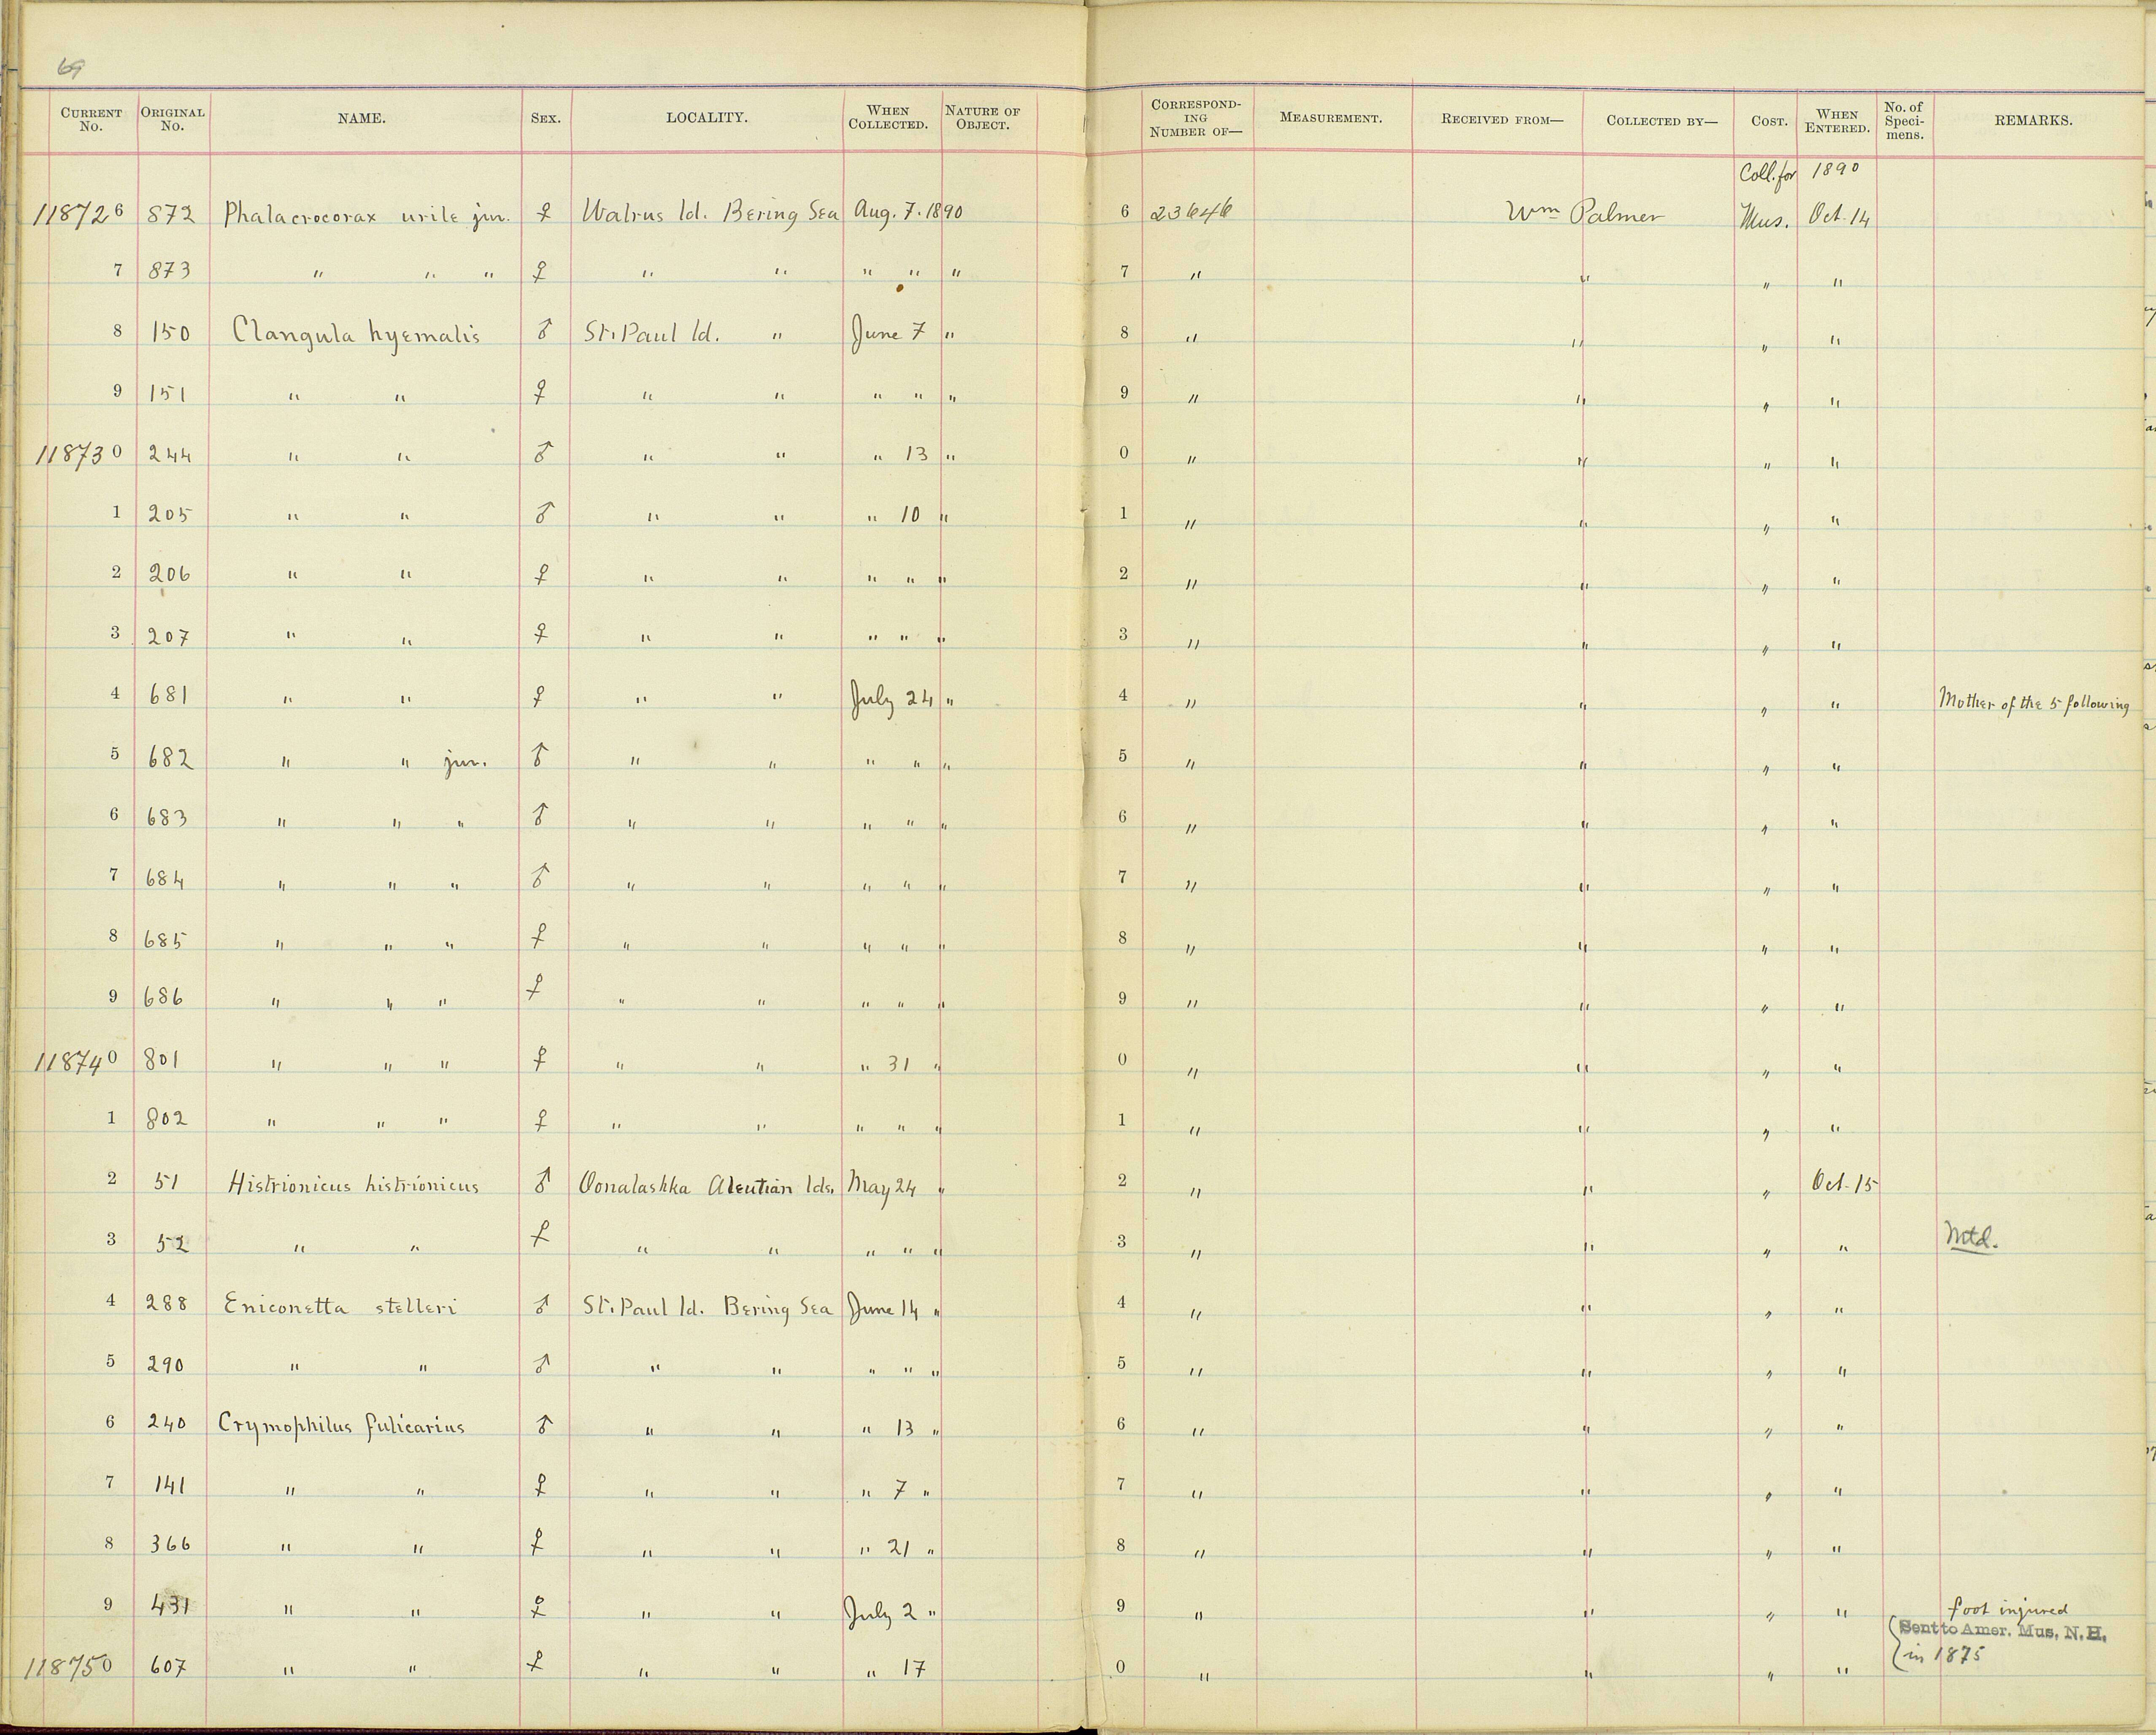 69
CURRENT No. ORIGINAL No. NAME. SEX. LOCALITY. WHEN COLLECTED. NATURE OF OBJECT. CORRESPONDING NUMBER OF— MEASUREMENT. RECEIVED FROM— COLLECTED BY— COST. WHEN ENTERED. No. of Specimens. REMARKS.
Coll. for 1890
118726 872 Phalacrocorax urile jur. ♀ Walrus Id. Bering Sea Aug. 7. 1890 6 23646 Wm Palmer Mus. Oct. 14
7 873 " " " ♀ " " " " " 7 " " " "
8 150 Clangula hyemalis ♂ St. Paul Id. " June 7 " 8 " " " "
9 151 " " ♀ " " " " " 9 " " " "
118730 244 " " ♂ " " " 13 " 0 " " " "
1 205 " " ♂ " " " 10 " 1 " " " "
2 206 " " ♀ " " " " " 2 " " " "
3 207 " " ♀ " " " " " 3 " " " "
4 681 " " ♀ " " July 24 " 4 " " " " Mother of the 5 following
5 682 " " jur. ♂ " " " " " 5 " " " "
6 683 " " " ♂ " " " " " 6 " " " "
7 684 " " " ♂ " " " " " 7 " " " "
8 685 " " " ♀ " " " " " 8 " " " "
9 686 " " " ♀ " " " " " 9 " " " "
118740 801 " " " ♀ " " " 31 " 0 " " " "
1 802 " " " ♀ " " " " " 1 " " " "
2 51 Histrionicus histrionicus ♂ Oonalashka Aleutian Ids. May 24 " 2 " " " Oct. 15
3 52 " " ♀ " " " " " 3 " " " " Mtd.
4 288 Eniconetta stelleri ♂ St. Paul Id. Bering Sea June 14 " 4 " " " "
5 290 " " ♂ " " " " " 5 " " " "
6 240 Crymophilus fulicarius ♂ " " " 13 " 6 " " " "
7 141 " " ♀ " " " 7 " 7 " " " "
8 366 " " ♀ " " " 21 " 8 " " " "
9 431 " " ♀ " " July 2 " 9 " " " " foot injured
Sent to Amer. Mus. N. H.
in 1875
118750 607 " " ♀ " " " 17 0 " " " "